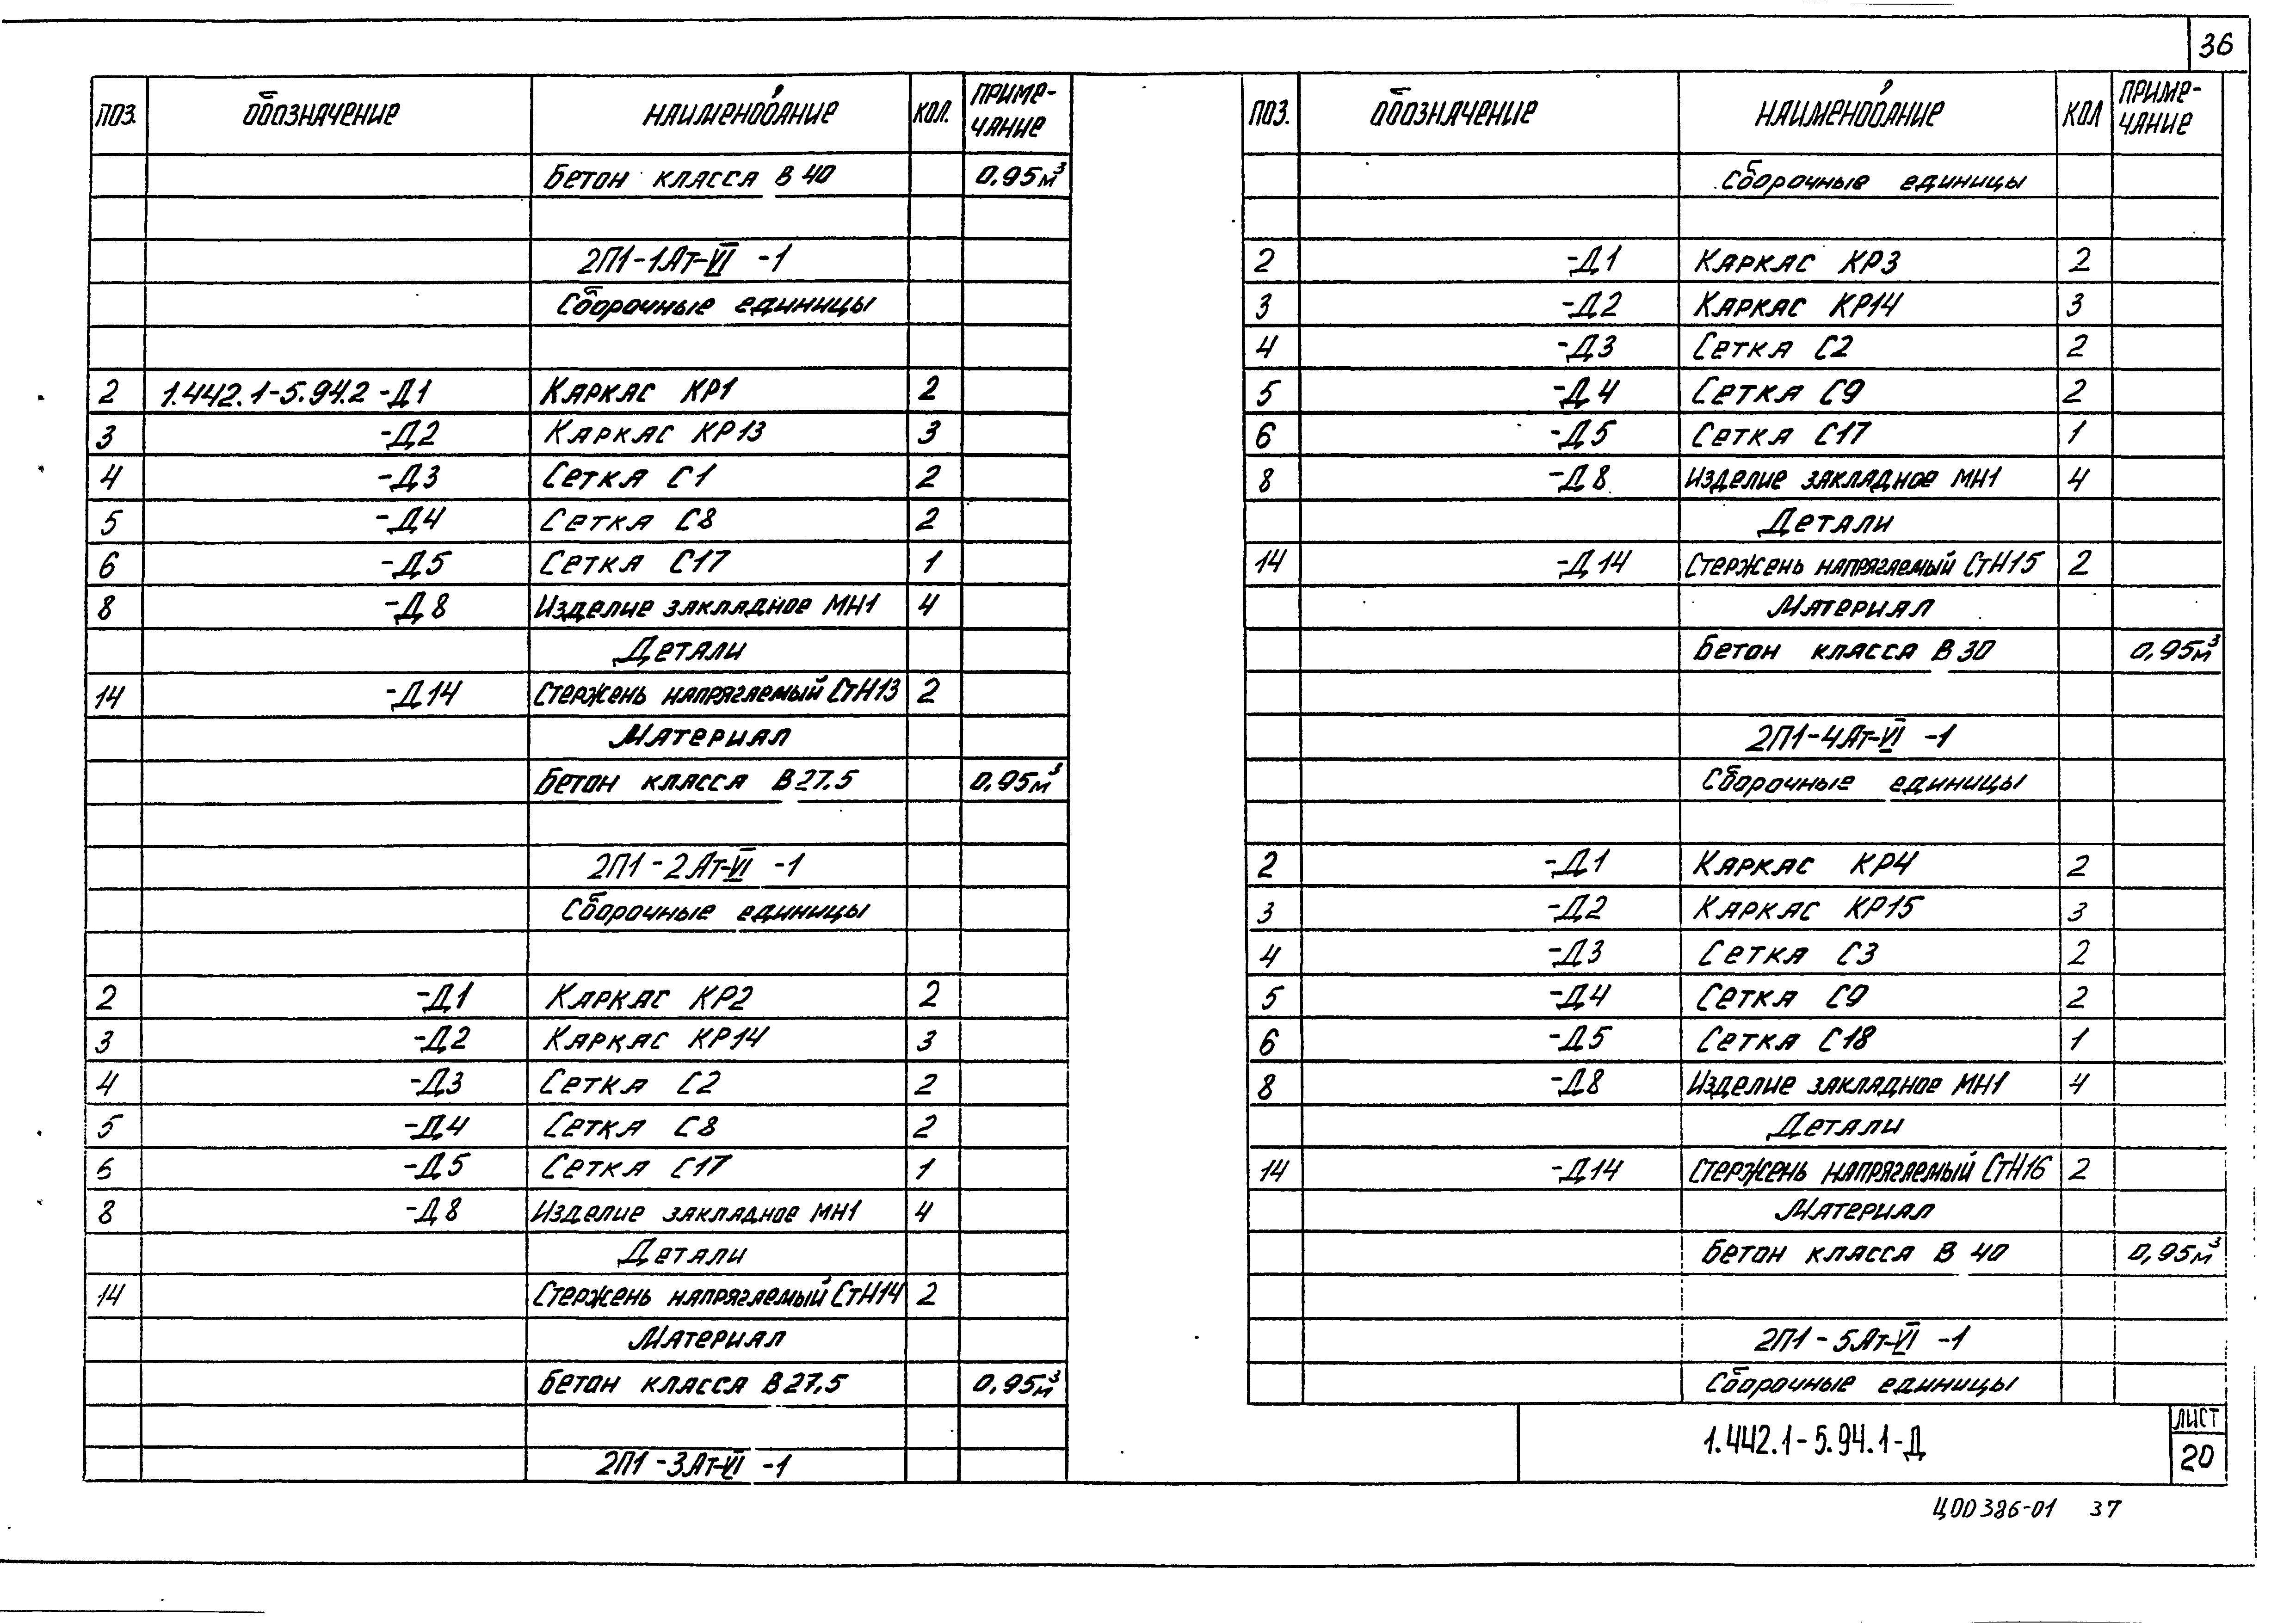 36
ПОЗ. ОБОЗНАЧЕНИЕ НАИМЕНОВАНИЕ КОЛ. ПРИМЕ-
ЧАНИЕ
Бетон класса В 40 0.95м³
2П1-1Ат-VI -1
Сборочные единицы
2 1.442.1-5.94.2 -Д1 Каркас КР1 2
3 -Д2 Каркас КР13 3
4 -Д3 Сетка С1 2
5 -Д4 Сетка С8 2
6 -Д5 Сетка С17 1
8 -Д8 Изделие закладное МН1 4
Детали
14 -Д14 Стержень напрягаемый СтН13 2
Материал
Бетон класса В27.5 0,95м³
2П1-2Ат-VI -1
Сборочные единицы
2 -Д1 Каркас КР2 2
3 -Д2 Каркас КР14 3
4 -Д3 Сетка С2 2
5 -Д4 Сетка С8 2
6 -Д5 Сетка С17 1
8 -Д8 Изделие закладное МН1 4
Детали
14 Стержень напрягаемый СтН14 2
Материал
Бетон класса В27,5 0,95м³
2П1-3Ат-VI -1
ПОЗ. ОБОЗНАЧЕНИЕ НАИМЕНОВАНИЕ КОЛ ПРИМЕ-
ЧАНИЕ
Сборочные единицы
2 -Д1 Каркас КР3 2
3 -Д2 Каркас КР14 3
4 -Д3 Сетка С2 2
5 -Д4 Сетка С9 2
6 -Д5 Сетка С17 1
8 -Д8 Изделие закладное МН1 4
Детали
14 -Д14 Стержень напрягаемый СтН15 2
Материал
Бетон класса В30 0,95м³
2П1-4Ат-VI -1
Сборочные единицы
2 -Д1 Каркас КР4 2
3 -Д2 Каркас КР15 3
4 -Д3 Сетка С3 2
5 -Д4 Сетка С9 2
6 -Д5 Сетка С18 1
8 -Д8 Изделие закладное МН1 4
Детали
14 -Д14 Стержень напрягаемый СтН16 2
Материал
Бетон класса В 40 0,95м³
2П1-5Ат-VI -1
Сборочные единицы
1.442.1-5.94.1-Д
ЛИСТ
20
Ц00386-01 37